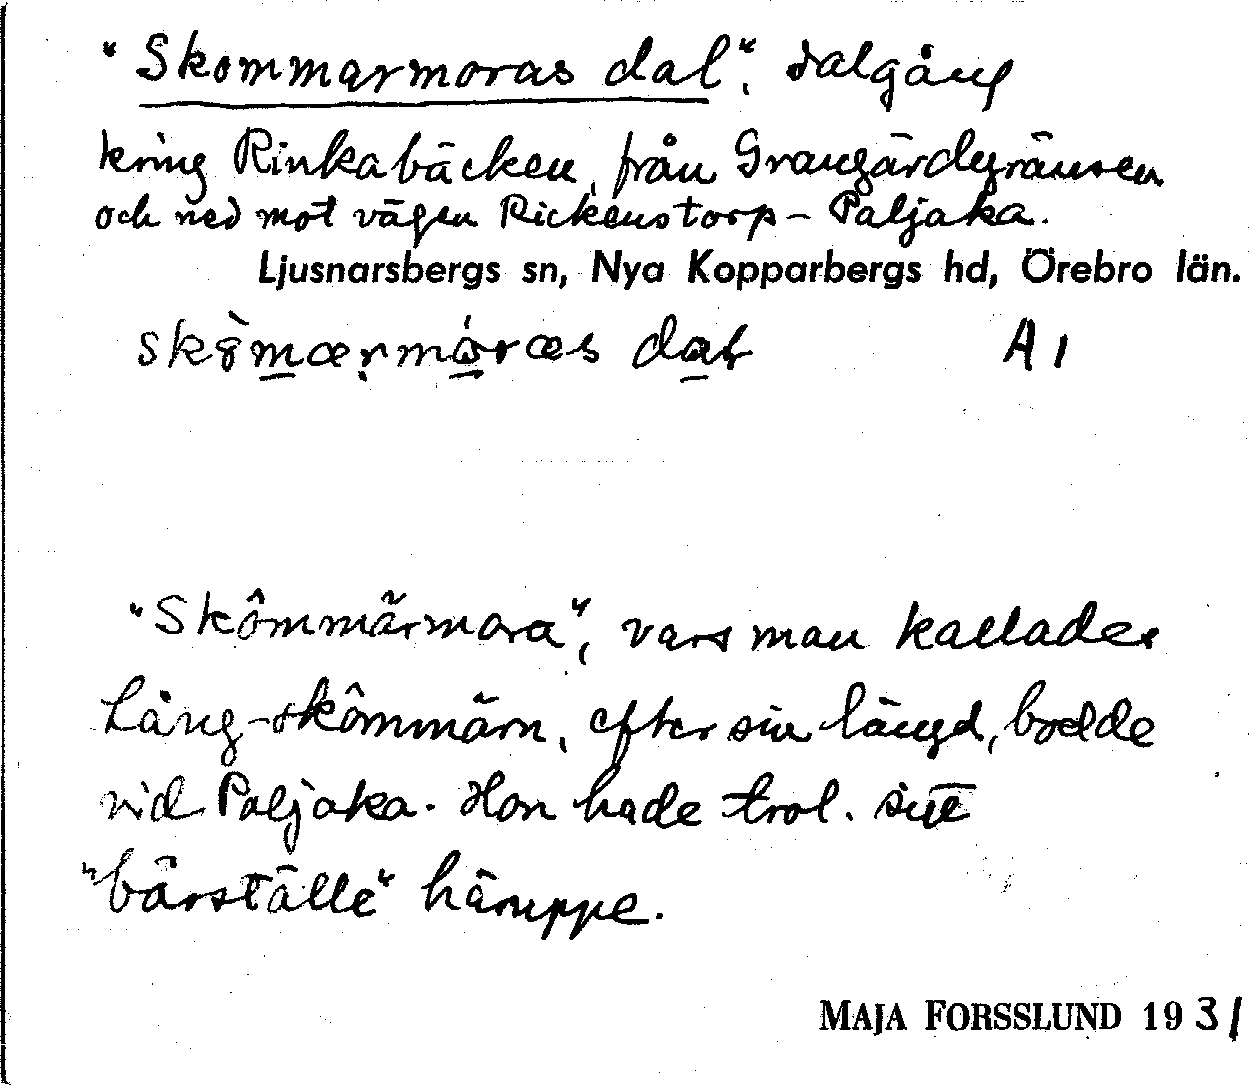 "Skommarmoras dal", dalgång
kring Rinkabäcken, från Grangärdegränsen
och ned mot vägen Rickenstorp - Paljaka.
Ljusnarsbergs sn, Nya Kopparbergs hd, Örebro län.
dal A 1
"Skômmärmora", vars man kallades
Lång-skômmärn, efter sin längd, bodde
vid Paljaka. Hon hade trol. sitt
"bärställe" häruppe.
MAJA FORSSLUND 1931